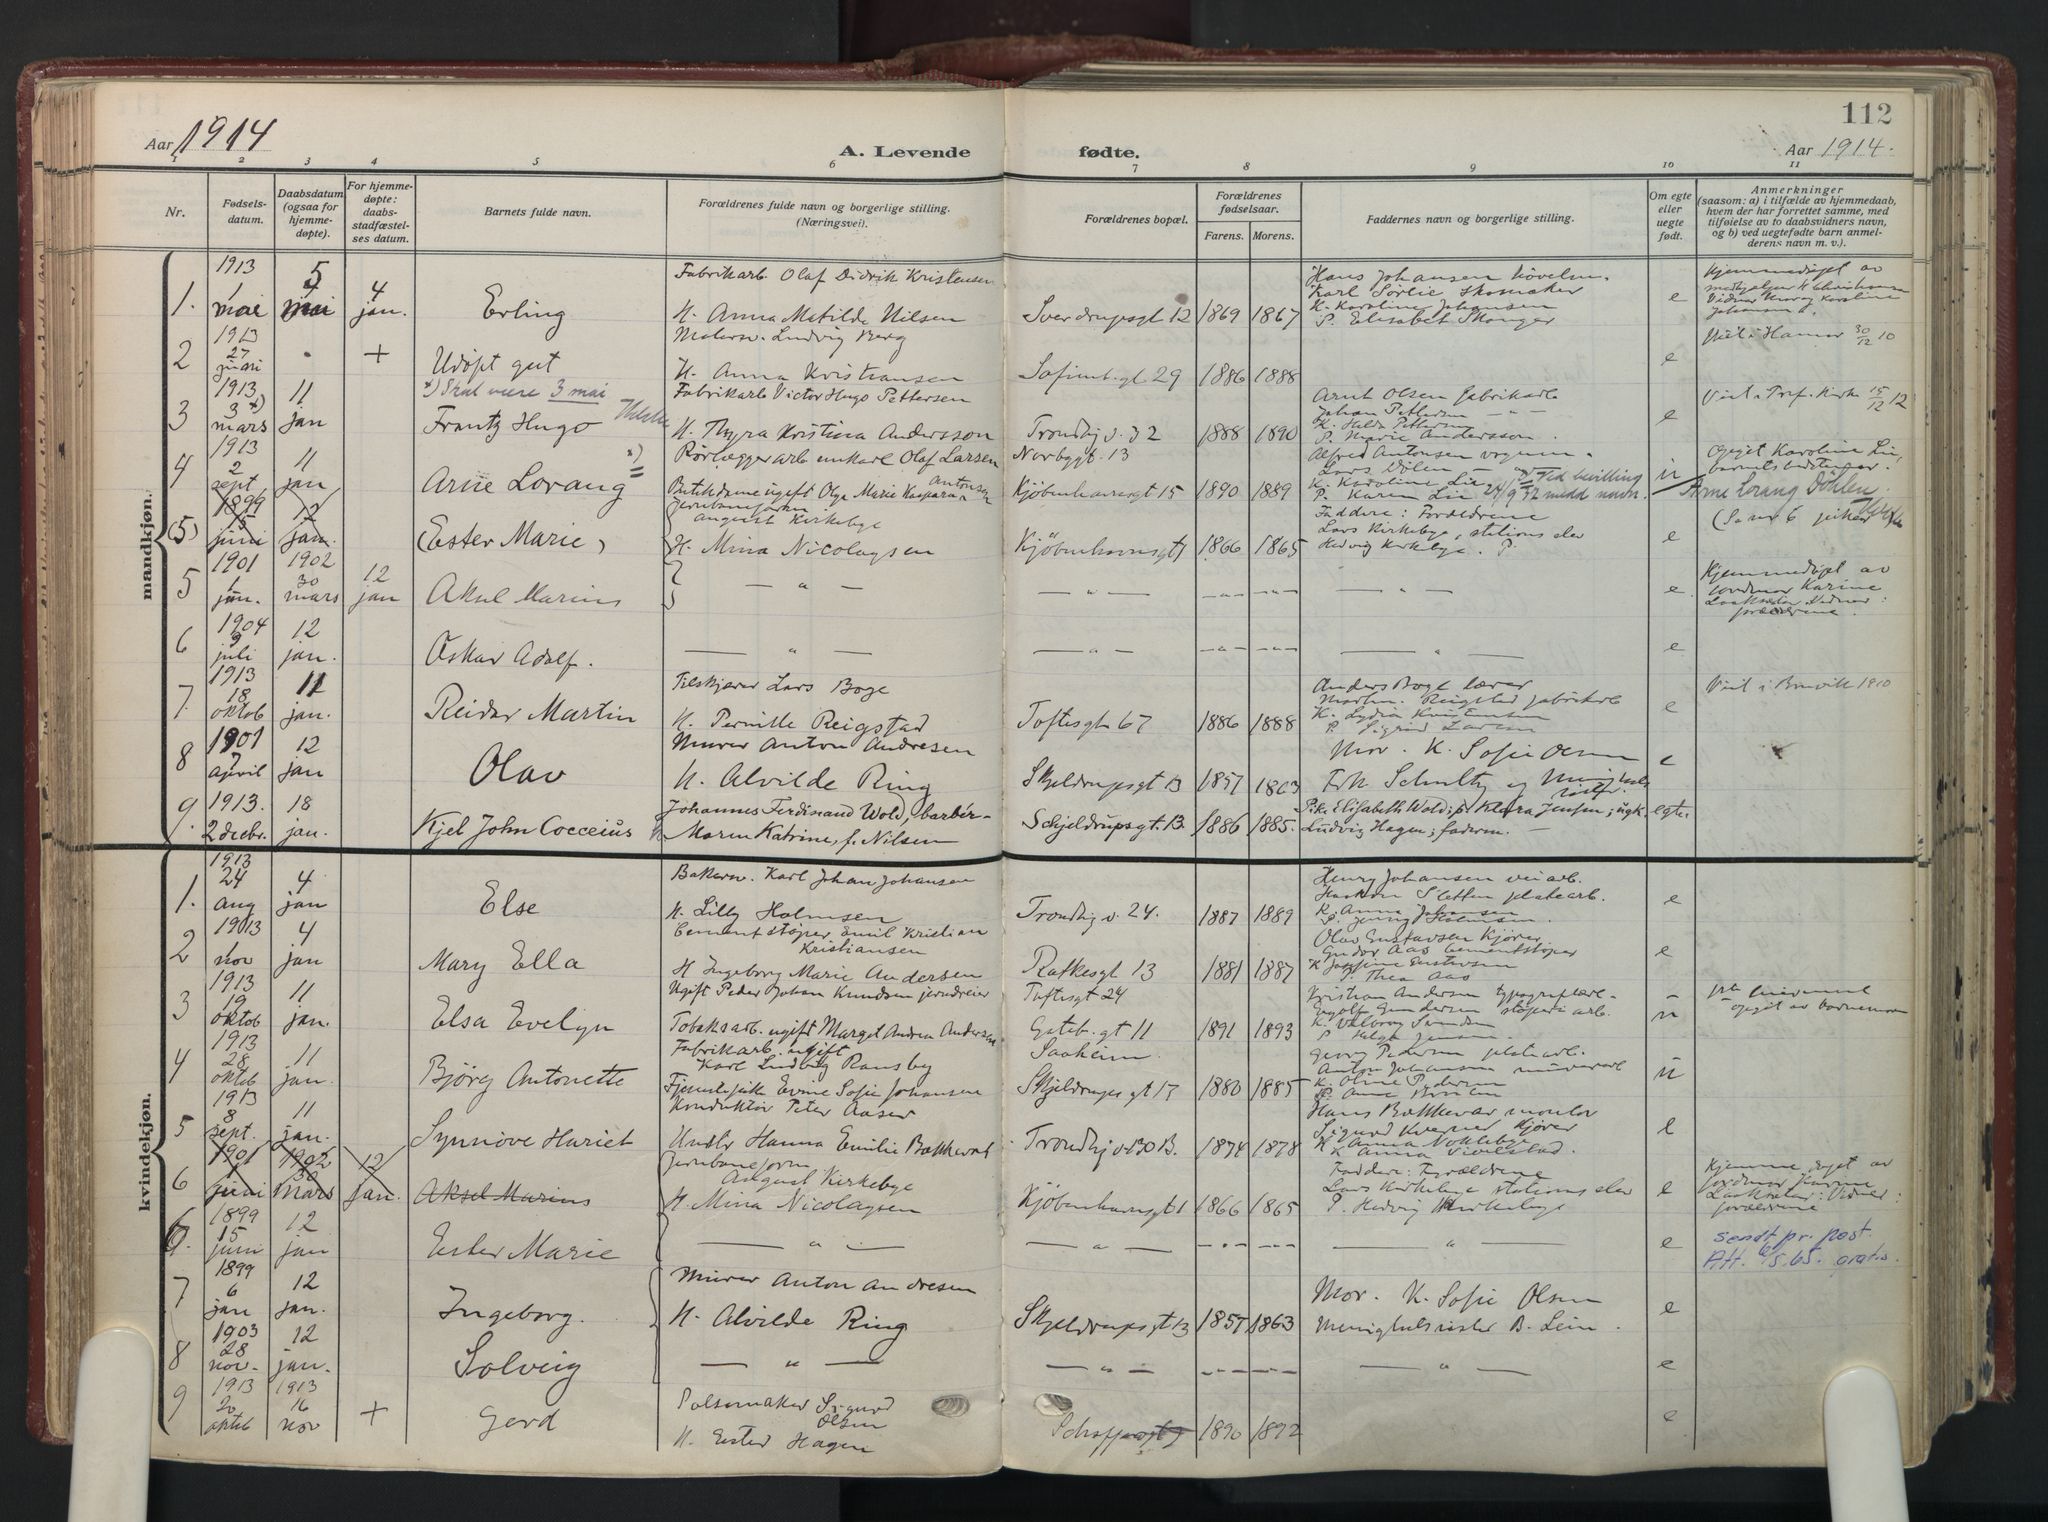 112
Aar 1914
A. Levende fødte.
Aar 1914.
1 2 3 4 5 6 7 8 9 10 11
Nr.
Fødsels-
datum.
Daabsdatum
(ogsaa for
hjemme-
døpte).
For hjemme-
døpte:
daabs-
stadfæstel-
ses datum.
Barnets fulde navn.
Forældrenes fulde navn og borgerlige stilling.
(Næringsvei).
Forældrenes bopæl.
Forældrenes
fødselsaar.
Farens. Morens.
Faddernes navn og borgerlige stilling.
Om egte
eller
uegte
født.
Anmerkninger
(saasom: a) i tilfælde av hjemmedaab,
hvem der har forrettet samme, med
tilføielse av to daabsvidners navn,
og b) ved uegtefødte barn anmel-
derens navn m. v.).
mandkjøn.
1. 1913 1 mai 5 mai 4 jan. Erling
Fabrikarb. Olaf Didrik Kristensen
H. Anna Matilde Nilsen
Sverdrupsgt 12 1869 1867
Hans Johansen
Karl Sørlie, skomaker
K. Karoline Johansen
P. Elisabet
e
Hjemmedøpt av
2 1913 27 + Udøpt gut
Malersv. Ludvig Berg
H. Anna Kristiansen
Sofienb.gt 29 1886 1888
e
Viet i Hamar 30/12 10
3 1913 3 x) mars 11 jan
x) Skal være 3 mai
Frantz Hugo
Fabrikarb Victor Hugo Pettersen
H. Thyra Kristina Andersson
Trondhj v. 32 1888 1890
Arnt Olsen fabrikarb
Johan Pettersen — " —
K. Hulda Pettersen
P. Marie Andersson.
e
15/12 12
4 1913 2 sept 11 jan Arne Lorang x)
Rørlæggerarb unkarl Olaf Larsen
Butikdame ugift Olga Marie
Norbygt. 13
Kjøbenhavnsgt 15 1890 1889
Alfred Antonsen
K. Karoline Lie
P. Karen Lie
x) Ted bevilling
24/9 32 medd navn.
u
Opgit Karoline Lie,
Arne Lorang Döhlen
(5) 1899 15 juni 12 jan. (Ester Marie)
Jernbaneform
August Kirkebye
H. Mina Nicolaysen
Kjøbenhavnsgt 1 1866 1865
Faddere: Forældrene
Lars Kirkebye, stations elev
Hedvig Kirkebye. P.
e
(Se nr 6 piker)
5 1901 1 jun. 1902 30 mars 12 jan Aksel Marius
— " —
— " — — " — — " — — " —
e
Hjemmedøpt av
jordmor Karine
forældrene.
6 1904 9 juli 12 jan. Oskar Adolf.
— " —
— " — — " — — " — — " —
e
7 1913 18 oktob 11 jan. Reidar Martin
Lars Boge
H. Pernille Reigstad
Toftesgt 67 1886 1888
Anders Boge lærer
Martin Reigstad fabrikarb
K. Lydia
P. Sigrid Larsen
e
Viet i 1910
8 1901 7 april 12 jan Olav
Murer Anton Andresen
H. Alvilde Ring
Skjeldrupsgt 13 1857 1863
Mor. K. Sofie Olsen
Frk Schultz og
e
9. 1913. 2 decbr. 18 jan. Kjel John Cocceius
Johannes Ferdinand Wold, barbér-
H. Maren Katrine, f. Nilsen
Schjeldrupsgt. 13. 1886 1885.
Pik. Elisabeth Wold; p. Klara Jensen; ugk.
Ludvig Hagen; faderen. —
egte.
kvindekjøn.
1. 1913 24 aug 4 jan Else
Bakersv. Karl Johan Johansen
H. Lilly Holmsen
Trondhj v. 24. 1887 1889
Henry Johansen veiarb.
Haakon Sletten platearb.
K. Anna Johansen
P. Jenny Holmsen.
e
2 1913 1 nov 4 jan Mary Ella
Cementstøper Emil Kristian
Kristiansen
H Ingeborg Marie Andersen
Ratkesgt 13 1881 1887
Olav Gustavsen kjører
Gudor Aas cementstøper
K Josefine Gustavsen
P. Thea Aas
e
3 1913 19 oktob 11 jan. Elsa Evelyn
Ugift Peder Johan Knudsen jerndreier
Tobaksarb. ugift Margot Andrea Andersen
Toftesgt 24
Gøteb. gt 11 1891 1893
Kristian Andersen
Ingolf Gundersen støperi arb.
K. Valborg
P. Helga Jensen
u
opgit av barnemor
4 1913 28 oktob 11 jan. Bjørg Antonette
Fabrikarb. ugift
Karl Ludvig Ransby
Tjenestepike Evine Sofie Johansen
Saaheim.
Skjeldrups gt 17 1880 1885
Georg Pedersen platearb.
Anton Johansen murerarb
K. Oline Pedersen
u
5 1913 8 sept. 11 jan. Synnöve Hariet
Konduktör Peter Aaser
Hustr Hanna Emilie Bakkevar
Trondhj v 30 B. 1874 1878
Hans Bakkevar montör
Sigurd Kverner kjører
K Anna Noklebye
e
6 1901 1 juni 1902 30 mars 12 jan. Aksel Marius
Jernbaneform
August Kirkebye
H. Mina Nicolaysen
Kjöbenhavnsgt 1 1866 1865
Faddere: Forældrene
Lars Kirkebye stations elev
P. Hedvig Kirkebye
e
Hjemmedøpt av
jordmor Karine
Vidner:
forældrene
6 1899 15 juni 12 jan Ester Marie
— " —
— " — — " — — " — — " —
e
sendt pr. post.
Att. 6/5.65. gratis.
7 1899 6 jan 12 jan. Ingeborg.
Murer Anton Andresen
H. Alvilde Ring
Skjeldrupsgt 13 1857 1863
Mor. K. Sofie Olsen
Menighetssøster B. Lein.
e
8 1903 28 nov. 12 jan. Solveig
— " —
— " — — " — — " — — " —
e
9 1913 20 oktob 1913 16 nov + Gerd
Pølsemaker Sigurd
Olsen
H. Ester Hagen
1890 1892
e